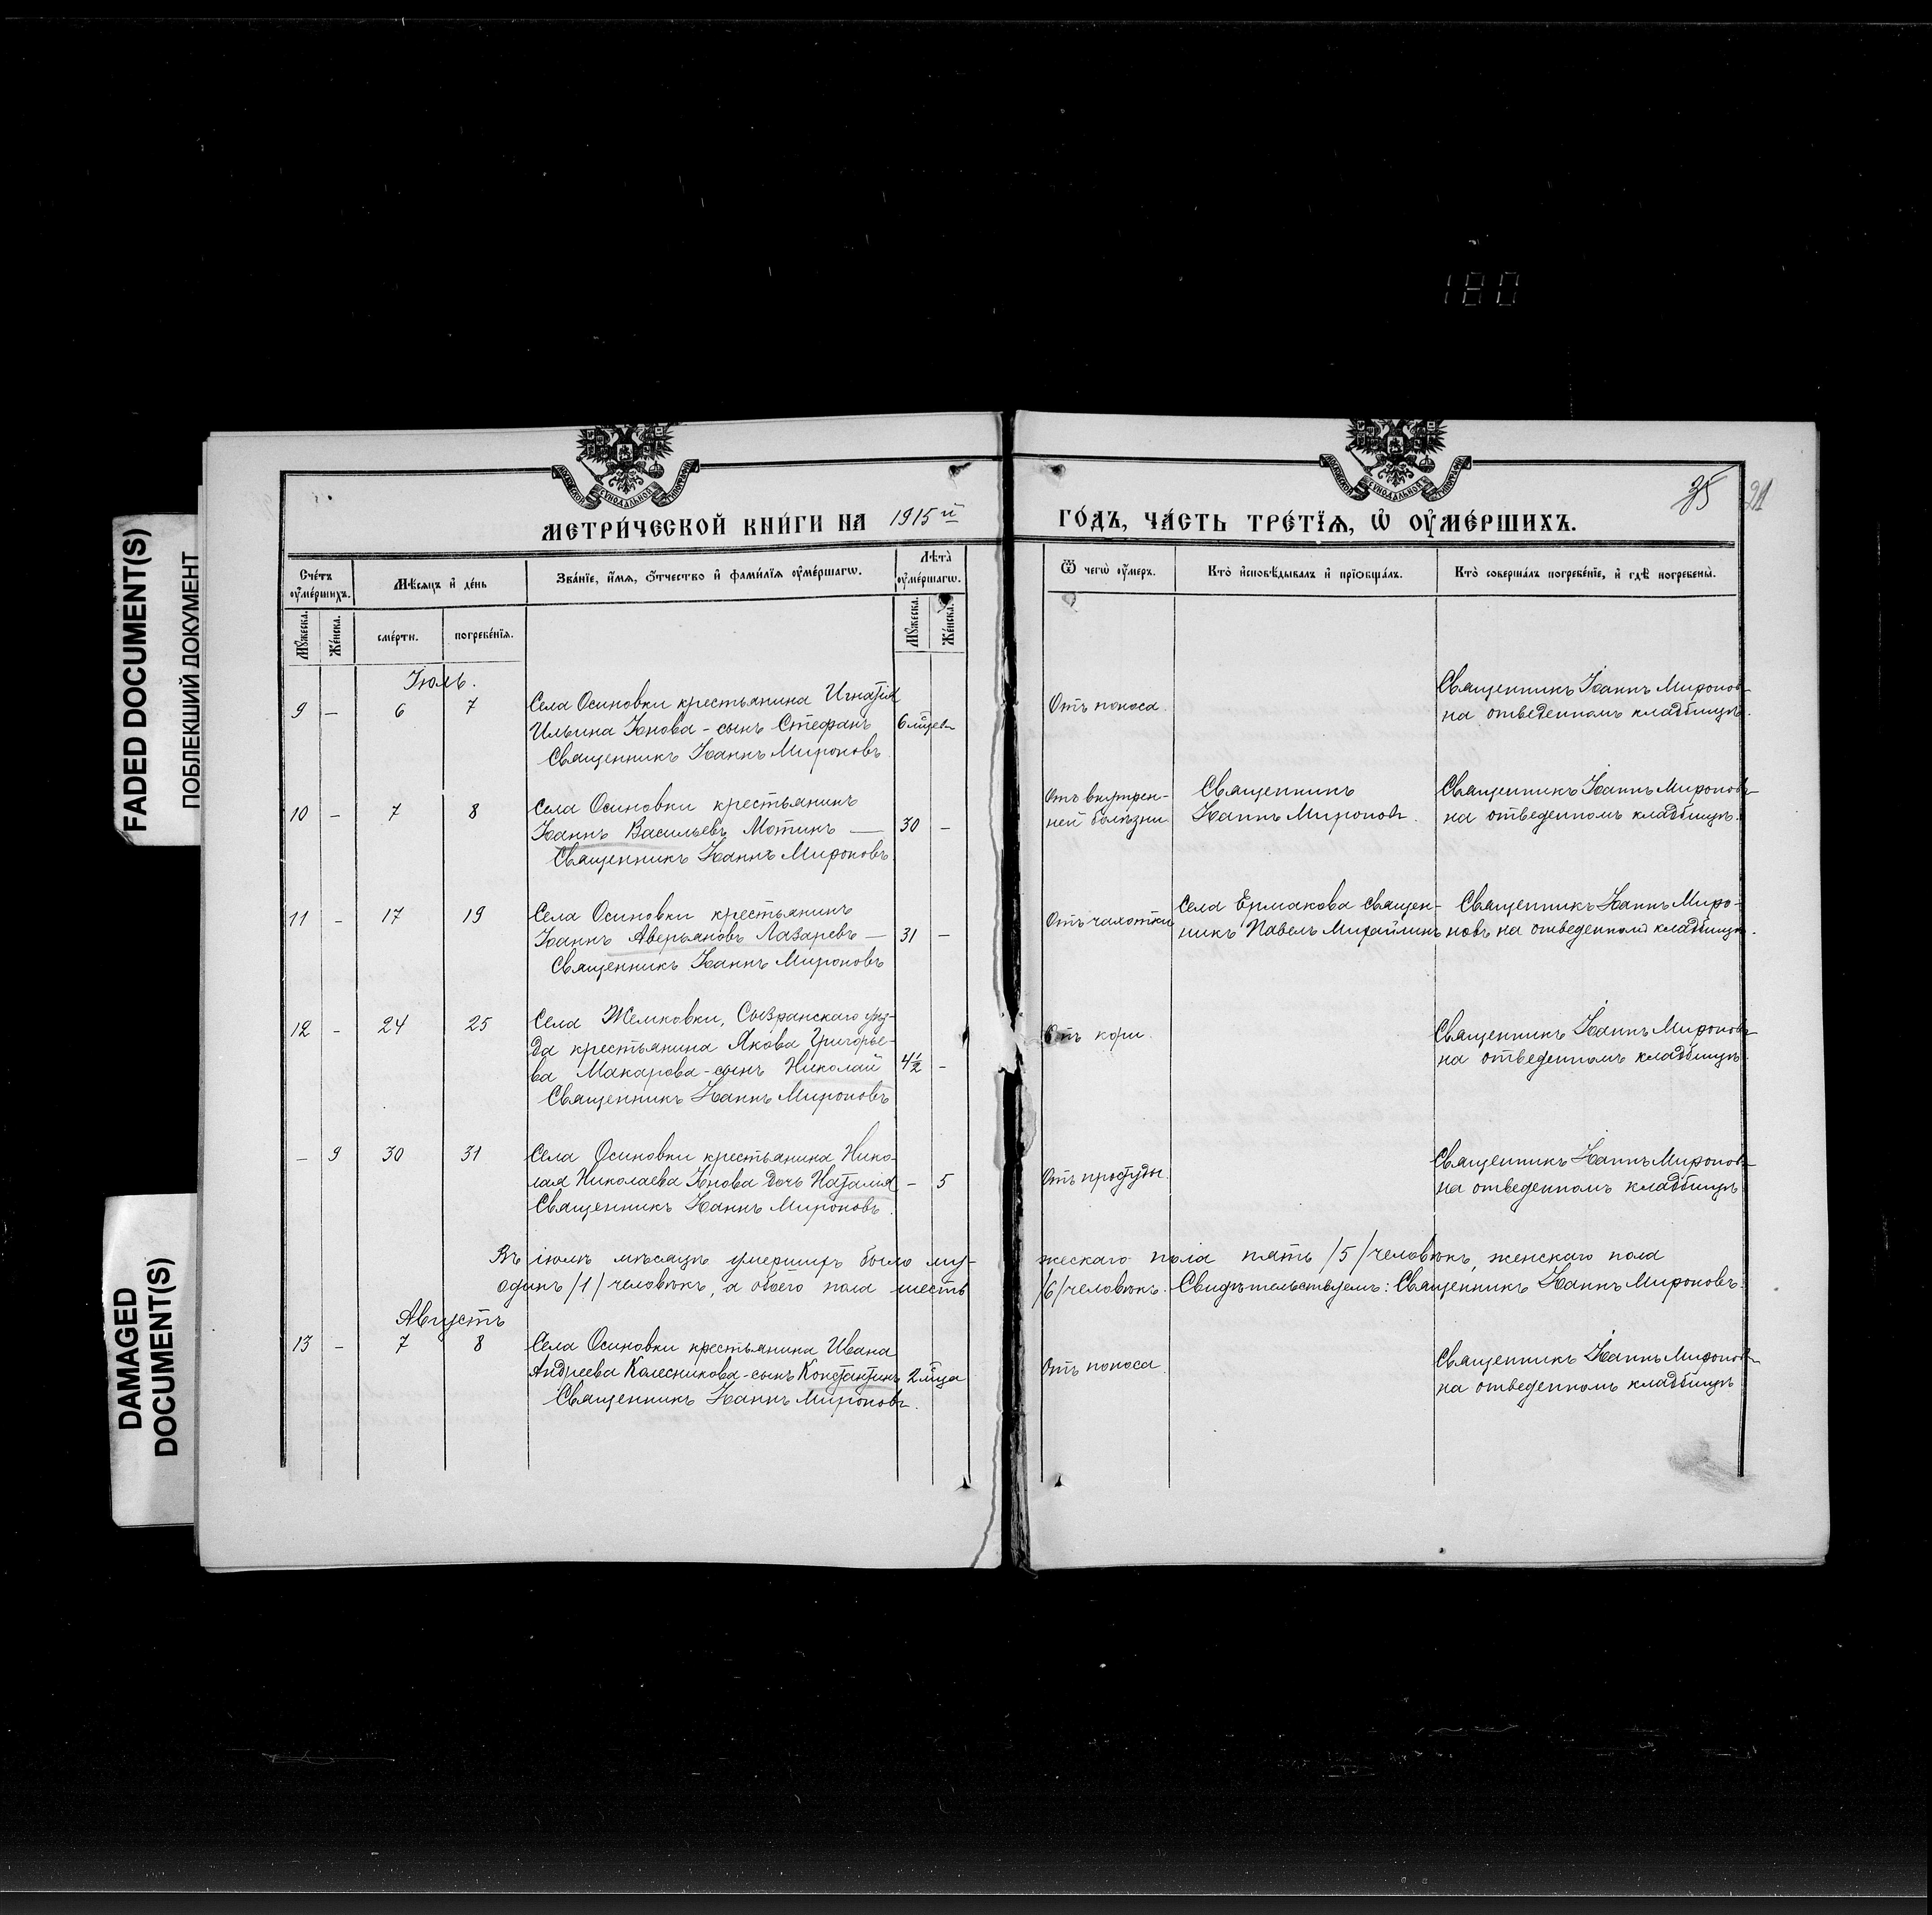 180
FADED DOCUMENT(S)
ПОБЛЕКШИЙ ДОКУМЕНТ
DAMAGED
DOCUMENT(S)
МЕТРИ́ЧЕСКОЙ КНИ́ГИ НА 1915й
ГО́ДЪ, ЧА́СТЬ ТРЕ́ТЇѦ, Ѡ҆ ОУ҆МЕ́РШИХЪ.
35
Сче́тъ оу҆ме́ршихъ.
Мѣ́сѧцъ и҆ де́нь
Зва́нїе, и҆́мѧ, ѻ҆́тчество и҆ фами́лїѧ оу҆ме́ршагѡ.
Лѣ́та оу҆ме́ршагѡ.
Ѿ чегѡ̀ оу҆́меръ.
Кто̀ и҆сповѣ́дывалъ и҆ прїѡбща́лъ.
Кто̀ соверша́лъ погребе́нїе, и҆ гдѣ̀ погребены̀.
Мꙋ́жеска.
Же́нска.
сме́рти.
погребе́нїѧ.
Мꙋ́жеска.
Же́нска.
Іюль.
9 – 6 7
Села Осиновки крестьянина Игнатія
Ильина Юнова - сынъ Стефанъ 6 мцевъ
Священникъ Іоаннъ Мироновъ
Отъ поноса.
Священникъ Іоаннъ Мироновъ
на отведенномъ кладбищѣ.
10 – 7 8
Села Осиновки крестьянинъ
Іоаннъ Васильевъ Мотинъ — 30 –
Священникъ Іоаннъ Мироновъ
Отъ внутрен-
ней болѣзни
Священникъ
Іоаннъ Мироновъ.
Священникъ Іоаннъ Мироновъ
на отведенномъ кладбищѣ.
11 – 17 19
Села Осиновки крестьянинъ
Іоаннъ Аверьяновъ Лазаревъ — 31 –
Священникъ Іоаннъ Мироновъ
Отъ чахотки
Села Ермакова священ-
никъ Павелъ Михайлинъ
Священникъ Іоаннъ Миро-
новъ на отведенномъ кладбищѣ.
12 – 24 25
Села Жемковки, Сызранскаго уѣз-
да крестьянина Якова Григорье-
ва Макарова - сынъ Николай 4½ –
Священникъ Іоаннъ Мироновъ
Отъ кори.
Священникъ Іоаннъ Мироновъ
на отведенномъ кладбищѣ.
– 9 30 31
Села Осиновки крестьянина Нико-
лая Николаева Юнова дочь Наталія – 5
Священникъ Іоаннъ Мироновъ.
Отъ простуды.
Священникъ Іоаннъ Мироновъ
на отведенномъ кладбищѣ.
Въ іюлѣ мѣсяцѣ умершихъ было му-
жескаго пола пять /5/ человѣкъ, женскаго пола
одинъ /1/ человѣкъ, а обоего пола шесть
/6/ человѣкъ. Свидѣтельствуемъ: Священникъ Іоаннъ Мироновъ.
Августъ
13 – 7 8
Села Осиновки крестьянина Ивана
Андреева Колесникова - сынъ Константинъ 2 мца
Священникъ Іоаннъ Мироновъ.
Отъ поноса.
Священникъ Іоаннъ Мироновъ
на отведенномъ кладбищѣ